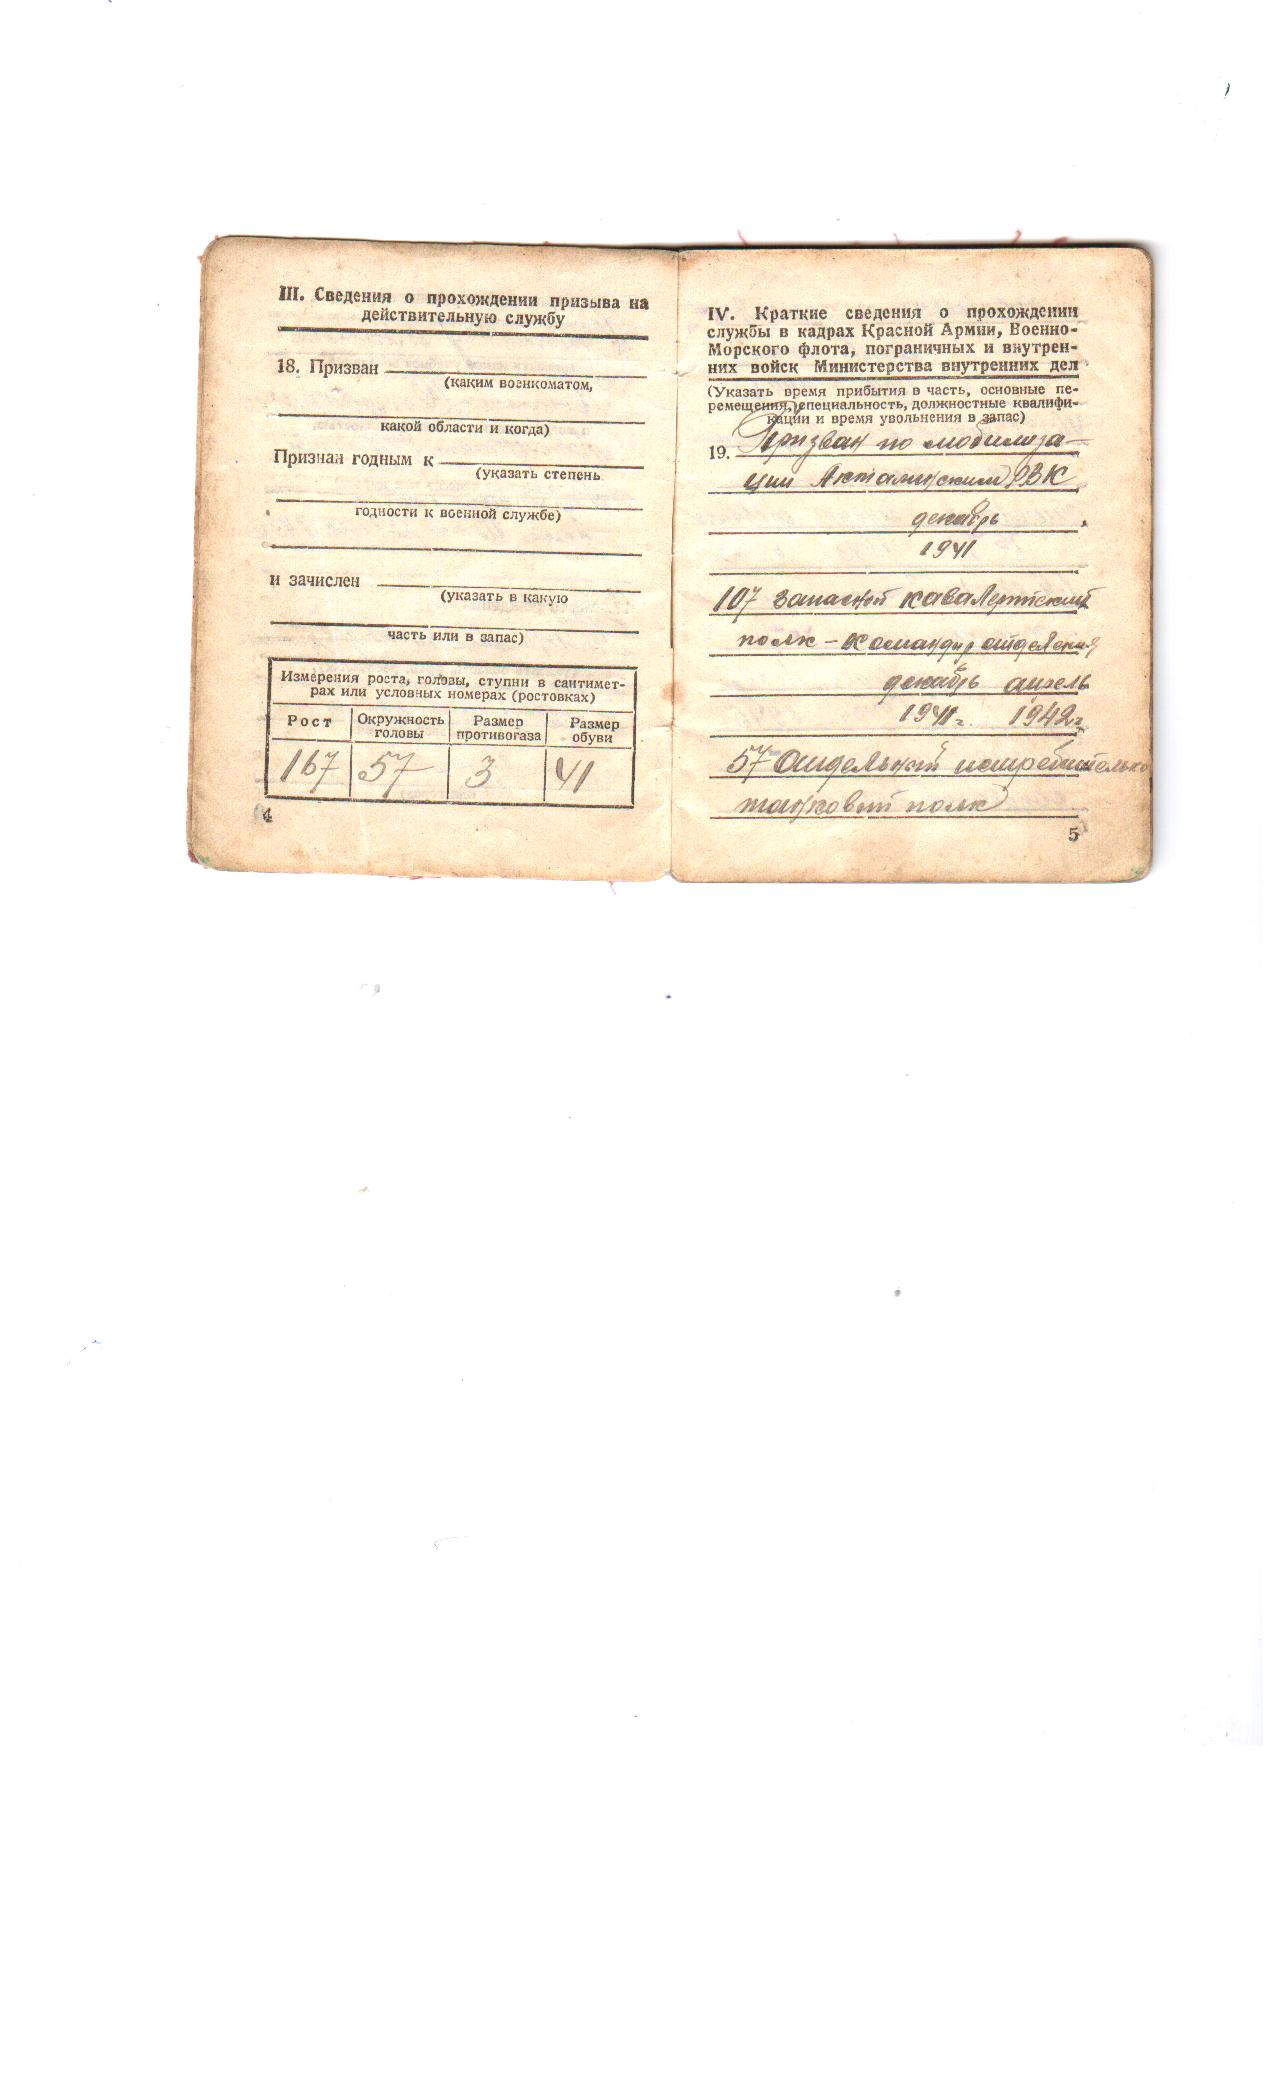 III. Сведения о прохождении призыва на
действительную службу
18. Призван
(каким военкоматом,
какой области и когда)
Признан годным к
(указать степень
годности к военной службе)
и зачислен
(указать в какую
часть или в запас)
Измерения роста, головы, ступни в сантимет-
рах или условных номерах (ростовках)
Рост Окружность головы Размер противогаза Размер обуви
167 57 3 41
4
IV. Краткие сведения о прохождении
службы в кадрах Красной Армии, Военно-
Морского флота, пограничных и внутрен-
них войск Министерства внутренних дел
(Указать время прибытия в часть, основные пе-
ремещения, специальность, должностные квалифи-
кации и время увольнения в запас)
19. Призван по мобилиза-
ции РВК
декабрь
1941
107 запасной кавалерийский
полк - командир отделения
декабрь апрель
1941 г. 1942 г.
57 отдельный истребительно
танковый полк
5